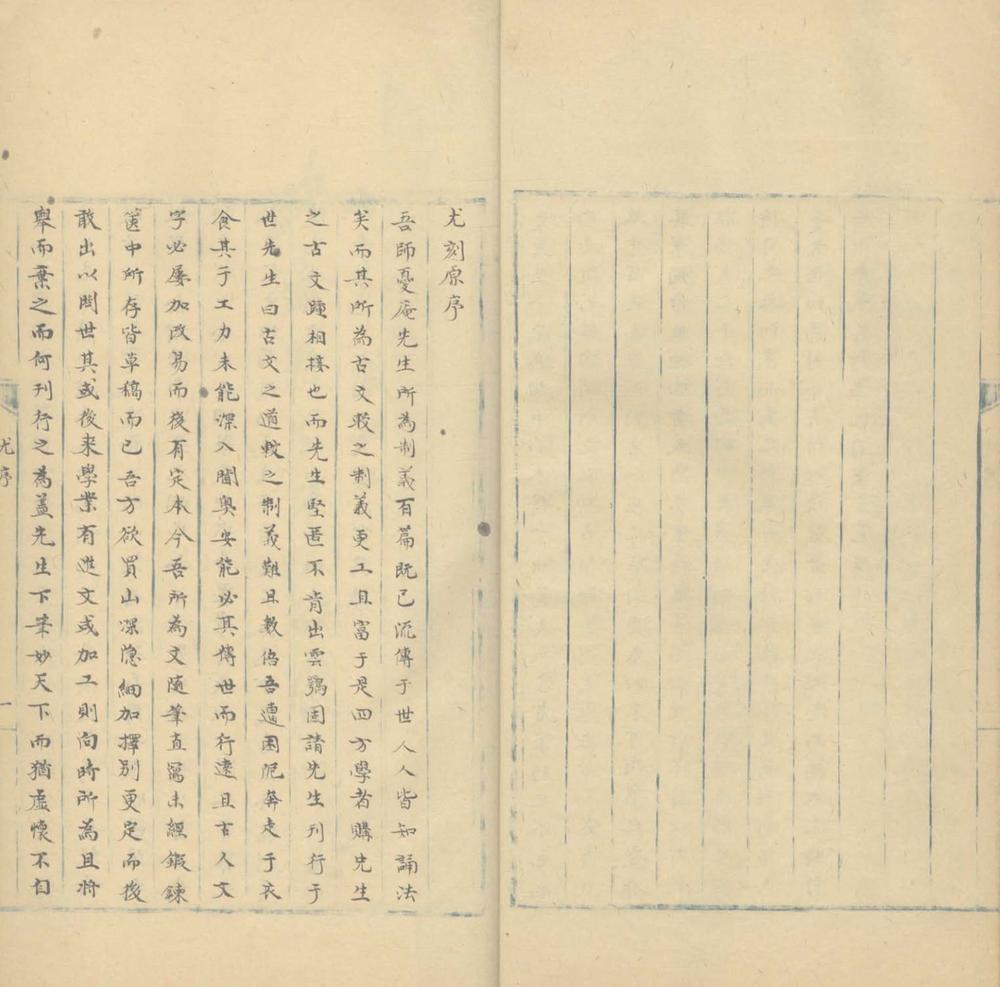 尤刻原序
吾師憂庵先生所為制義百篇既已流傳于世人人皆知誦法
矣而其所為古文較之制義更工且富于是四方學者購先生
之古文踵相接也而先生堅匿不肯出雲鶚固請先生刊行于
世先生曰古文之道較之制義難且數倍吾遭困阨奔走于衣
食其于工力未能深入閫奥安能必其傳世而行遠且古人文
字必屢加改易而後有定本今吾所為文隨筆直寫未經鍜鍊
篋中所存皆草稿而已吾方欲買山深隐細加擇别更定而後
敢出以問世其或後来學業有進文或加工則向時所為且將
舉而棄之而何刊行之為盖先生下筆妙天下而猶虚懷不自
尤序
一